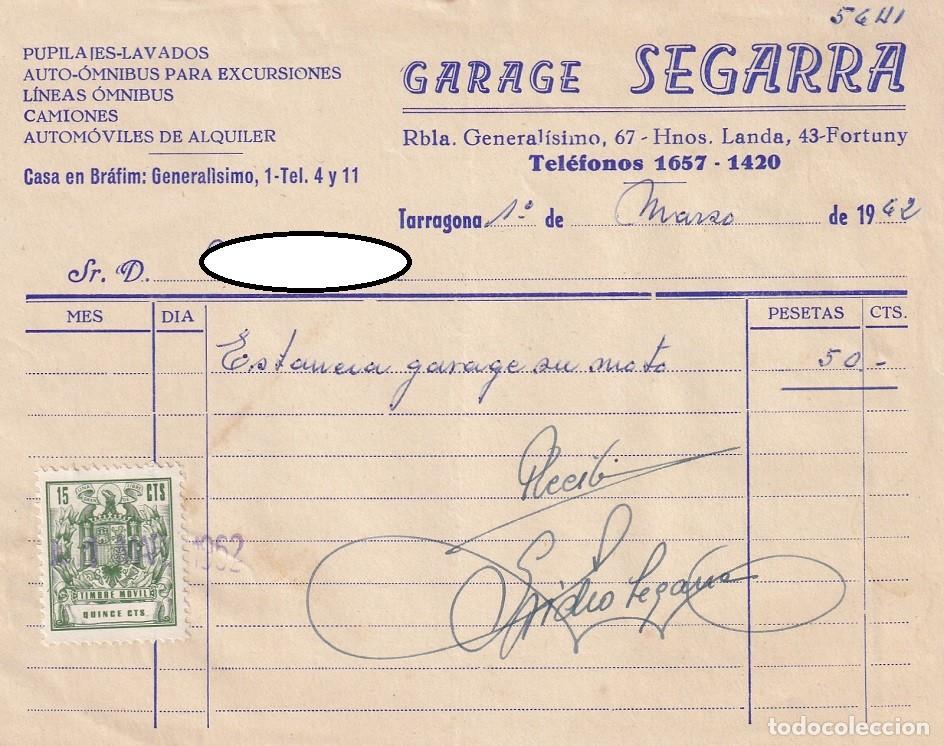 5641
PUPILAJES-LAVADOS
AUTO-ÓMNIBUS PARA EXCURSIONES
LÍNEAS ÓMNIBUS
CAMIONES
AUTOMÓVILES DE ALQUILER
Casa en Bráfim: Generalìsimo, 1-Tel. 4 y 11
GARAGE SEGARRA
Rbla. Generalísimo, 67 - Hnos. Landa, 43-Fortuny
Teléfonos 1657 - 1420
Tarragona 1º de Marzo de 1962
Sr. D.
MES DIA PESETAS CTS.
Estancia garage su moto 50 -
Recibí
Isidro Segarra
15 CTS
1962
TIMBRE MOVIL
QUINCE CTS.
todocoleccion